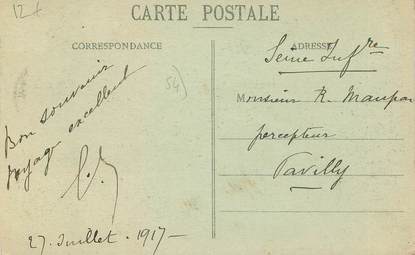 12 +
CARTE POSTALE
CORRESPONDANCE
ADRESSE
54
Bon souvenir
voyage excellent
27. Juillet. 1917 —
Seine Infre
Monsieur R. Maupas
percepteur
Pavilly